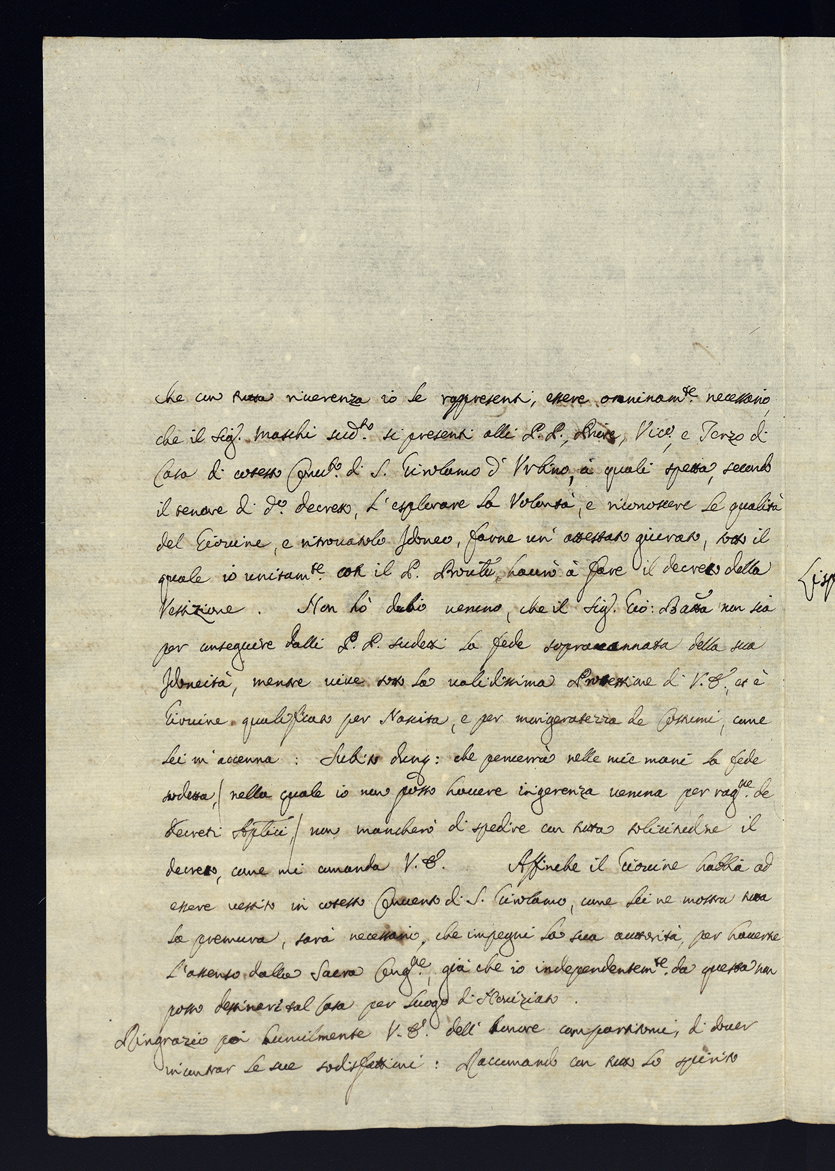 che con tutta riverenza io le rappresenti, essere omninam.te necessario,
che il Sig.r Maschi sud.to si presenti alli P. P., Priore, Vic.o, e Terzo di
Casa di cotesto Conv.to di S. Girolamo d'Urbino, à quali spetta, secondo
il tenore di d.o decreto, l'esplorare la Volontà, e riconoscere le qualità
del Giovine, e ritrovatolo Idoneo, farne un'attestato giurato, sotto il
quale io unitam.te con il P. haurò à fare il decreto della
Vestizione. Non hò dubio veruno, che il Sig.r Gio: Batta non sia
per conseguire dalli P. P. sudetti la fede sopracennata della sua
Idoneità, mentre vive sotto la validissima Protettione di V. S., et è
Giovine qualificato per Nascita, e per morigeratezza de Costumi, come
lei m'accenna: Subito dunq: che perverrà nelle mie mani la fede
sudetta, /nella quale io non posso havere ingerenza veruna per rag.ne de
decreti Aplici,/ non mancherò di spedire con tutta solicitudine il
decreto, come mi comanda V. S. Affinche il Giovine habbia ad
essere vestito in cotesto Convento di S. Girolamo, come lei ne mostra tutta
la premura, sarà necessario, che impegni la sua autorità, per haverne
l'assenso dalla Sacra Cong.ne, già che io independentem.te da questa non
posso destinare tal Casa per luogo di Noviziato.
Ringrazio poi humilmente V. S. dell'honore compartitomi, di dover
incontrar le sue sodisfattioni: Raccomando con tutto lo spirito